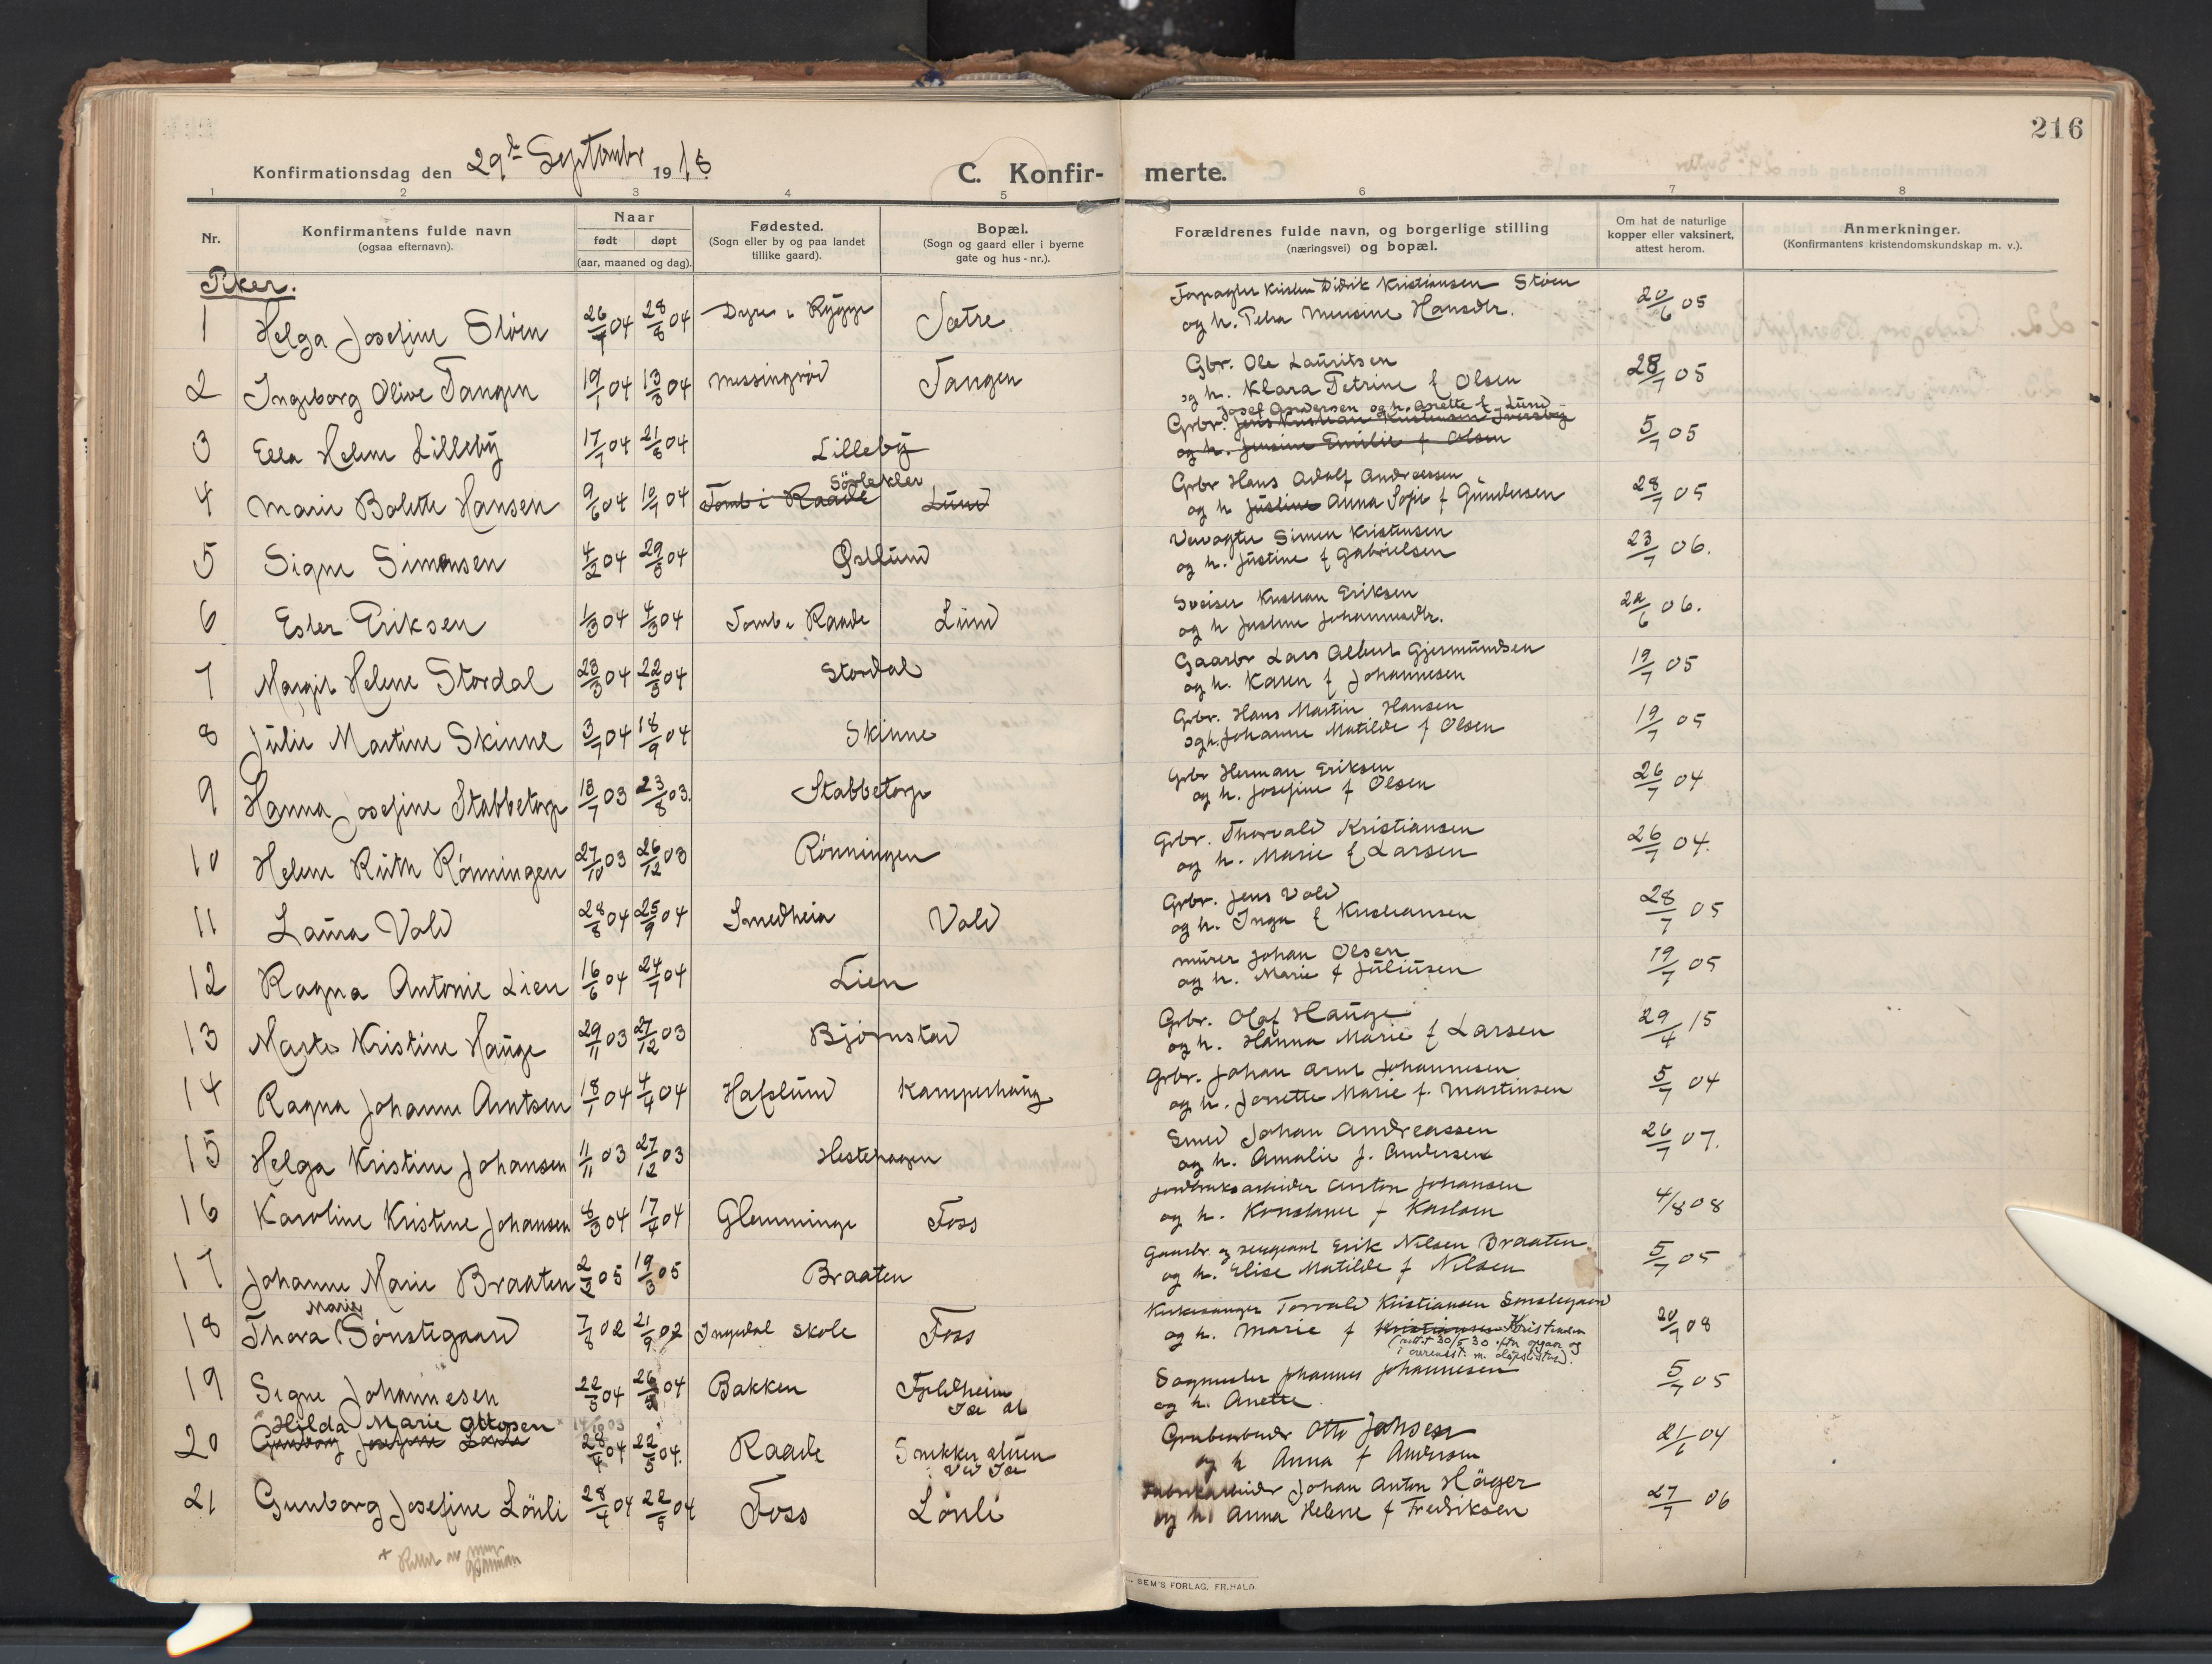 216
Konfirmationsdag den 29de September 1918
C. Konfir- merte.
1 2 3 4 5 6 7 8
Nr.
Konfirmantens fulde navn
(ogsaa efternavn).
Naar
født døpt
(aar, maaned og dag).
Fødested.
(Sogn eller by og paa landet
tillike gaard).
Bopæl.
(Sogn og gaard eller i byerne
gate og hus-nr.).
Forældrenes fulde navn, og borgerlige stilling
(næringsvei) og bopæl.
Om hat de naturlige
kopper eller vaksinert,
attest herom.
Anmerkninger.
(Konfirmantens kristendomskundskap m. v.).
Piker.
1 Helga Josefine Støen 26/7 04 28/8 04 Dyre i Rygge Sætre
Forpagter Kristen Didrik Kristiansen Støen
og h. Petra Mensine Hansdtr. 20/6 05
2 Ingeborg Olive Tangen 19/1 04 13/3 04 Messingrød Tangen
Gbr. Ole Lauritsen
og h. Klara Petrine f Olsen 28/7 05
3 Ella Helene Lilleby 17/7 04 21/8 04 Lilleby
Josef Andersen og h. Anette f. Lund
Grbr. Jens Kristian Kristiansen Iversby
og h. Jensine Emilie f Olsen 5/7 05
4 Marie Bolette Hansen 9/6 04 10/7 04 Tomb i Raade Sørlekler Lund
Grbr Hans Adolf Andreassen
og h Justine Anna Sofie f Gundersen 28/7 05
5 Signe Simensen 4/2 04 29/5 04 Østlund
Veivogter Simen Kristensen
og h. Justine f Gabrielsen 23/7 06.
6 Ester Eriksen 1/3 04 4/3 04 Tomb i Raade Lund
Sveiser Kristian Eriksen
og h Justine Johannesdtr. 22/6 06.
7 Margit Helene Stordal 23/3 04 22/5 04 Stordal
Gaarbr Lars Albert Gjermundsen
og h. Karen f Johannesen 19/7 05
8 Julie Martine Skinne 3/7 04 18/9 04 Skinne
Grbr. Hans Martin Hansen
og h. Johanne Matilde f Olsen 19/7 05
9 Hanna Josefine Stabbetorp 13/7 03 23/8 03. Stabbetorp
Grbr Herman Eriksen
og h. Josefine f Olsen 26/7 04
10 Helene Ruth Rønningen 27/10 03 26/12 03 Rønningen
Grbr. Thorvald Kristiansen
og h. Marie f Larsen 26/7 04.
11 Laura Vold 28/8 04 25/9 04 Smedheia Vold
Grbr. Jens Vold
og h. Inga f Kristiansen 28/7 05
12 Ragna Antonie Lien 16/6 04 24/7 04 Lien
Murer Johan Olsen
og h. Marie f Juliusen 19/7 05
13 Marta Kristine Hauge 29/11 03 27/12 03 Bjørnstad
Grbr. Olaf Hauge
og h. Hanna Marie f Larsen 29/4 15
14 Ragna Johanne Arntsen 18/1 04 4/4 04 Hafslund Kamperhaug
Grbr. Johan Arnt Johannesen
og h. Jonette Marie f. Martinsen 5/7 04
15 Helga Kristine Johansen 11/11 03 27/12 03 Hestehagen
Smed Johan Andreassen
og h. Amalie f. Andersen 26/7 07.
16 Karoline Kristine Johansen 6/3 04 17/4 04 Glemminge Foss
Jordbruksarbeider Anton Johansen
og h. Konstanse f Karlsen 4/8 08
17 Johanne Marie Braaten 2/2 05 19/3 05 Braaten
Gaarbr. og sergeant Erik Nilsen Braaten
og h. Elise Matilde f Nilsen 5/7 05
18 Thora Marie Sønstegaard 7/8 02 21/9 02 Ingedal skole Foss
Kirkesanger Torvald Kristiansen Sønstegaard
og h. Marie f Kristiansen Kristensen
(rettet 30/5 30 efter opgave og
i overenst. m. dåpslisten). 20/7 08
19 Signe Johannesen 22/3 04 26/5 04 Bakken Fjeldheim
Ise st
Sagmester Johannes Johannesen
og h. Anette. 5/7 05
Hilda Marie Ottosen × 14/10 03
20 Gunborg Josefine Lønli 28/4 04 22/5 04. Raade Snekker stuen
ved Ise
Grubearbeider Otto Jansen
og h Anna f Andersen 21/6 04
21 Gunborg Josefine Lönli 28/4 04 22/5 04 Foss Lönli
Fabrikarbeider Johan Anton Häger
og h. Anna Helene f Fredriksen 27/7 06
SEM'S FORLAG, FR.HALD.